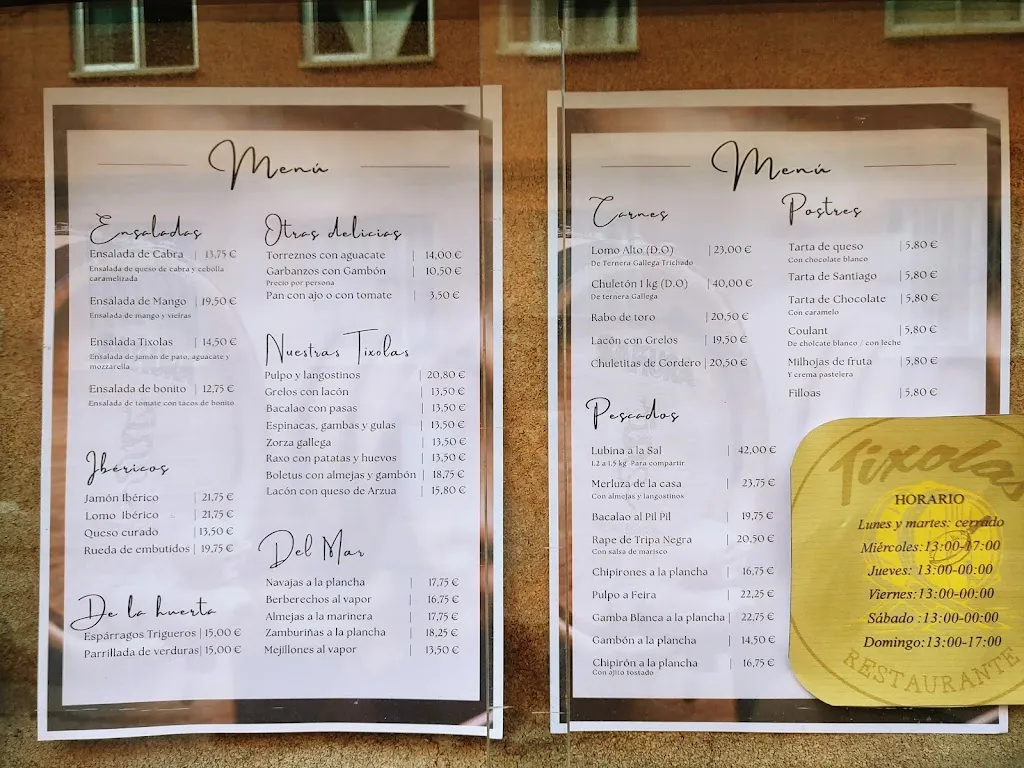 Menú
Ensaladas
Ensalada de Cabra | 13,75 €
Ensalada de queso de cabra y cebolla
caramelizada
Ensalada de Mango | 19,50 €
Ensalada de mango y vieiras
Ensalada Tixolas | 14,50 €
Ensalada de jamón de pato, aguacate y
mozzarella
Ensalada de bonito | 12,75 €
Ensalada de tomate con tacos de bonito
Ibéricos
Jamón Ibérico | 21,75 €
Lomo Ibérico | 21,75 €
Queso curado | 13,50 €
Rueda de embutidos | 19,75 €
De la huerta
Espárragos Trigueros | 15,00 €
Parrillada de verduras | 15,00 €
Otras delicias
Torreznos con aguacate | 14,00 €
Garbanzos con Gambón | 10,50 €
Precio por persona
Pan con ajo o con tomate | 3,50 €
Nuestras Tixolas
Pulpo y langostinos | 20,80 €
Grelos con lacón | 13,50 €
Bacalao con pasas | 13,50 €
Espinacas, gambas y gulas | 13,50 €
Zorza gallega | 13,50 €
Raxo con patatas y huevos | 13,50 €
Boletus con almejas y gambón | 18,75 €
Lacón con queso de Arzua | 15,80 €
Del Mar
Navajas a la plancha | 17,75 €
Berberechos al vapor | 16,75 €
Almejas a la marinera | 17,75 €
Zamburiñas a la plancha | 18,25 €
Mejillones al vapor | 13,50 €
Menú
Carnes
Lomo Alto (D.O) | 23,00 €
De Ternera Gallega Trichado
Chuletón 1 kg (D.O) | 40,00 €
De ternera Gallega
Rabo de toro | 20,50 €
Lacón con Grelos | 19,50 €
Chuletitas de Cordero | 20,50 €
Pescados
Lubina a la Sal | 42,00 €
1.2 a 1.5 kg Para compartir
Merluza de la casa | 23,75 €
Con almejas y langostinos
Bacalao al Pil Pil | 19,75 €
Rape de Tripa Negra | 20,50 €
Con salsa de marisco
Chipirones a la plancha | 16,75 €
Pulpo a Feira | 22,25 €
Gamba Blanca a la plancha | 22,75 €
Gambón a la plancha | 14,50 €
Chipirón a la plancha | 16,75 €
Con ajito tostado
Postres
Tarta de queso | 5,80 €
Con chocolate blanco
Tarta de Santiago | 5,80 €
Tarta de Chocolate | 5,80 €
Con caramelo
Coulant | 5,80 €
De cholcate blanco / con leche
Milhojas de fruta | 5,80 €
Y crema pastelera
Filloas | 5,80 €
Tixolas
HORARIO
Lunes y martes: cerrado
Miércoles:13:00-17:00
Jueves: 13:00-00:00
Viernes:13:00-00:00
Sábado :13:00-00:00
Domingo:13:00-17:00
RESTAURANTE